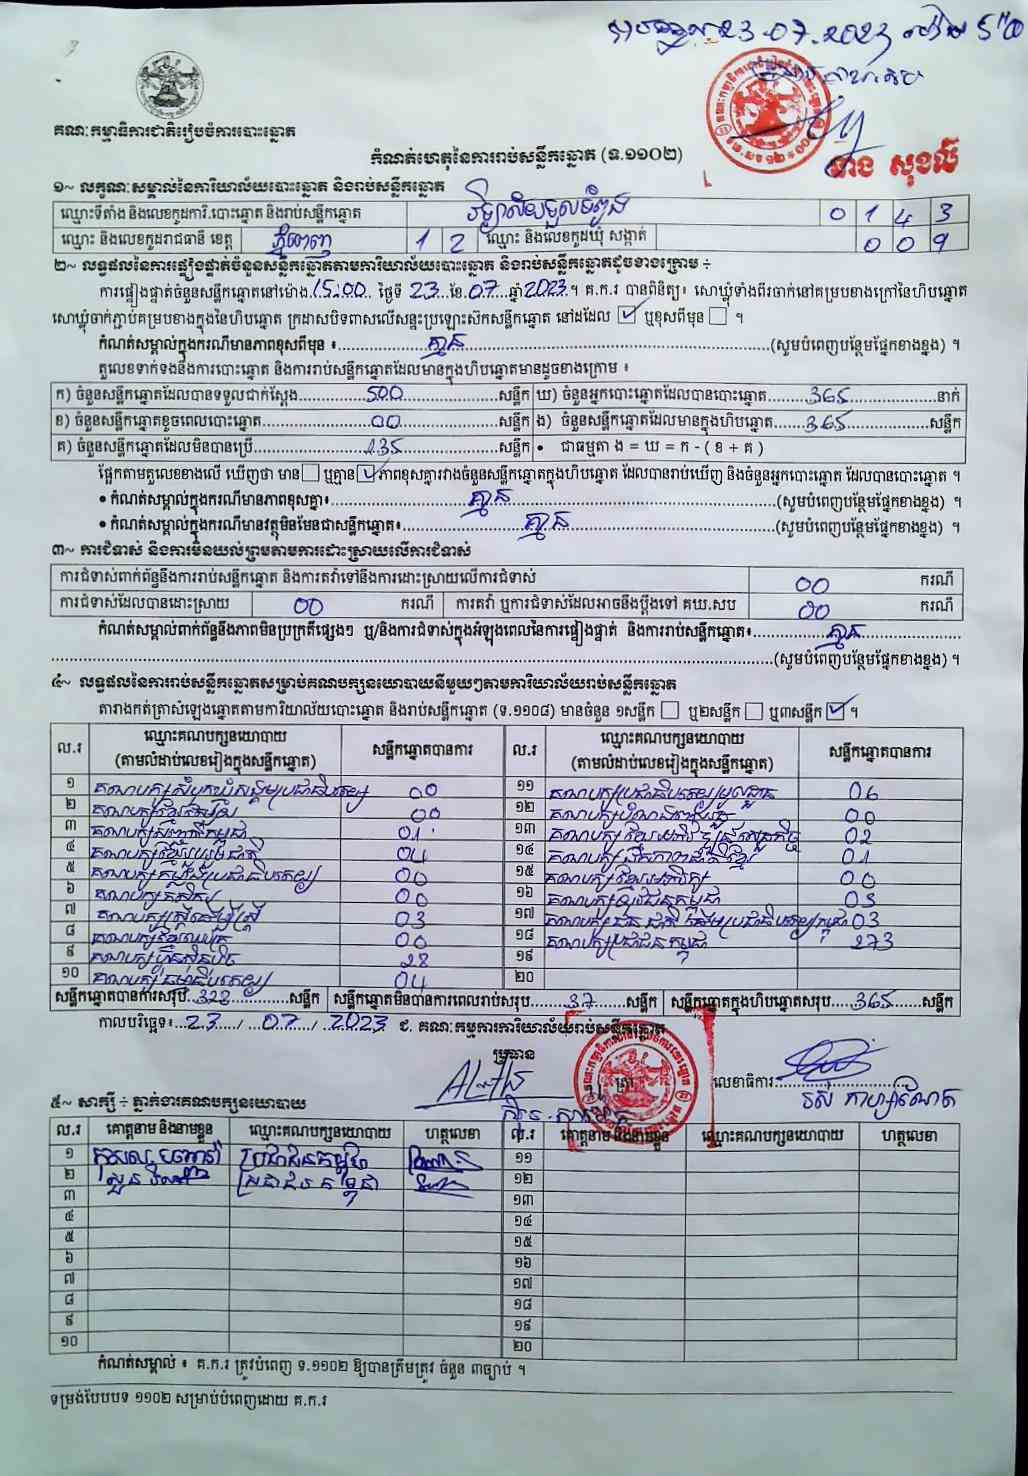 23.07.2023
គណៈកម្មាធិការជាតិរៀបចំការបោះឆ្នោត
កំណត់ហេតុនៃការរាប់សន្លឹកឆ្នោត (ទ.១១០២)
ទាង សុខលី
១~ លក្ខណៈសម្គាល់នៃការិយាល័យបោះឆ្នោត និងរាប់សន្លឹកឆ្នោត
ឈ្មោះទីតាំង និងលេខកូដការិ.បោះឆ្នោត និងរាប់សន្លឹកឆ្នោត វិទ្យាល័យទួលទំពូង 0 1 4 3
ឈ្មោះ និងលេខកូដរាជធានី ខេត្ត ភ្នំពេញ 1 2 ឈ្មោះ និងលេខកូដឃុំ សង្កាត់ 0 0 9
២~ លទ្ធផលនៃការផ្ទៀងផ្ទាត់ចំនួនសន្លឹកឆ្នោតតាមការិយាល័យបោះឆ្នោត និងរាប់សន្លឹកឆ្នោតដូចខាងក្រោម ÷
ការផ្ទៀងផ្ទាត់ចំនួនសន្លឹកឆ្នោតនៅម៉ោង 15:00 ថ្ងៃទី 23 ខែ 07 ឆ្នាំ 2023 ។ គ.ក.រ បានពិនិត្យ៖ សោឃ្លុំទាំងពីរចាក់នៅគម្របខាងក្រៅនៃហិបឆ្នោត
សោឃ្លុំចាក់ភ្ជាប់គម្របខាងក្នុងនៃហិបឆ្នោត ក្រដាសបិទពាសលើសន្ទះប្រឡោះស៊កសន្លឹកឆ្នោត នៅដដែល ☑ ឬខុសពីមុន ☐ ។
កំណត់សម្គាល់ក្នុងករណីមានភាពខុសពីមុន ៖ គ្មាន (សូមបំពេញបន្ថែមផ្នែកខាងខ្នង) ។
តួលេខទាក់ទងនឹងការបោះឆ្នោត និងការរាប់សន្លឹកឆ្នោតដែលមានក្នុងហិបឆ្នោតមានដូចខាងក្រោម ៖
ក) ចំនួនសន្លឹកឆ្នោតដែលបានទទួលជាក់ស្តែង 500 សន្លឹក ឃ) ចំនួនអ្នកបោះឆ្នោតដែលបានបោះឆ្នោត 365 នាក់
ខ) ចំនួនសន្លឹកឆ្នោតខូចពេលបោះឆ្នោត 00 សន្លឹក ង) ចំនួនសន្លឹកឆ្នោតដែលមានក្នុងហិបឆ្នោត 365 សន្លឹក
គ) ចំនួនសន្លឹកឆ្នោតដែលមិនបានប្រើ 135 សន្លឹក • ជាធម្មតា ង = ឃ = ក - ( ខ + គ )
ផ្អែកតាមតួលេខខាងលើ ឃើញថា មាន ☐ ឬគ្មាន ☑ ភាពខុសគ្នារវាងចំនួនសន្លឹកឆ្នោតក្នុងហិបឆ្នោត ដែលបានរាប់ឃើញ និងចំនួនអ្នកបោះឆ្នោត ដែលបានបោះឆ្នោត ។
• កំណត់សម្គាល់ក្នុងករណីមានភាពខុសគ្នា៖ គ្មាន (សូមបំពេញបន្ថែមផ្នែកខាងខ្នង) ។
• កំណត់សម្គាល់ក្នុងករណីមានវត្ថុមិនមែនជាសន្លឹកឆ្នោត៖ គ្មាន (សូមបំពេញបន្ថែមផ្នែកខាងខ្នង) ។
៣~ ការជំទាស់ និងការមិនយល់ព្រមតាមការដោះស្រាយលើការជំទាស់
ការជំទាស់ពាក់ព័ន្ធនឹងការរាប់សន្លឹកឆ្នោត និងការតវ៉ាទៅនឹងការដោះស្រាយលើការជំទាស់ 00 ករណី
ការជំទាស់ដែលបានដោះស្រាយ 00 ករណី ការតវ៉ា ឬការជំទាស់ដែលអាចនឹងប្តឹងទៅ គឃ.សប 00 ករណី
កំណត់សម្គាល់ពាក់ព័ន្ធនឹងភាពមិនប្រក្រតីផ្សេងៗ ឬ/និងការជំទាស់ក្នុងអំឡុងពេលនៃការផ្ទៀងផ្ទាត់ និងការរាប់សន្លឹកឆ្នោត៖ គ្មាន
(សូមបំពេញបន្ថែមផ្នែកខាងខ្នង) ។
៤~ លទ្ធផលនៃការរាប់សន្លឹកឆ្នោតសម្រាប់គណបក្សនយោបាយនីមួយៗតាមការិយាល័យរាប់សន្លឹកឆ្នោត
តារាងកត់ត្រាសំឡេងឆ្នោតតាមការិយាល័យបោះឆ្នោត និងរាប់សន្លឹកឆ្នោត (ទ.១១០៨) មានចំនួន ១សន្លឹក ☐ ឬ២សន្លឹក ☐ ឬ៣សន្លឹក ☑ ។
ល.រ ឈ្មោះគណបក្សនយោបាយ (តាមលំដាប់លេខរៀងក្នុងសន្លឹកឆ្នោត) សន្លឹកឆ្នោតបានការ ល.រ ឈ្មោះគណបក្សនយោបាយ (តាមលំដាប់លេខរៀងក្នុងសន្លឹកឆ្នោត) សន្លឹកឆ្នោតបានការ
១ គណបក្សសំបុកឃ្មុំសង្គមប្រជាធិបតេយ្យ 00 ១១ គណបក្សប្រជាធិបតេយ្យមូលដ្ឋាន 06
២ គណបក្សខ្មែរ 00 ១២ គណបក្ស 00
៣ គណបក្សសញ្ជាតិកម្ពុជា 01 ១៣ គណបក្សខ្មែរអភិវឌ្ឍន៍សេដ្ឋកិច្ច 02
៤ គណបក្សខ្មែររួបរួមជាតិ 04 ១៤ គណបក្សឯកភាពជាតិខ្មែរ 01
៥ គណបក្សកម្លាំងប្រជាធិបតេយ្យ 00 ១៥ គណបក្សខ្មែរ 00
៦ គណបក្សកសិករ 00 ១៦ គណបក្សយុវជនកម្ពុជា 03
៧ គណបក្សស្ត្រីដើម្បីស្ត្រី 03 ១៧ គណបក្ស 03
៨ គណបក្សខ្មែរ 00 ១៨ គណបក្សប្រជាជនកម្ពុជា 273
៩ គណបក្សហ្វ៊ុនស៊ិនប៉ិច 22 ១៩
១០ គណបក្សធម្មាធិបតេយ្យ 04 ២០
សន្លឹកឆ្នោតបានការសរុប 322 សន្លឹក សន្លឹកឆ្នោតមិនបានការពេលរាប់សរុប 37 សន្លឹក សន្លឹកឆ្នោតក្នុងហិបឆ្នោតសរុប 365 សន្លឹក
កាលបរិច្ឆេទ៖ 23 / 07 / 2023 ជ. គណៈកម្មការការិយាល័យរាប់សន្លឹកឆ្នោត
ប្រធាន ត្រា លេខាធិការ
៥~ សាក្សី ÷ ភ្នាក់ងារគណបក្សនយោបាយ
ល.រ គោត្តនាម និងនាមខ្លួន ឈ្មោះគណបក្សនយោបាយ ហត្ថលេខា ល.រ គោត្តនាម និងនាមខ្លួន ឈ្មោះគណបក្សនយោបាយ ហត្ថលេខា
១ ប្រជាជនកម្ពុជា ១១
២ ប្រជាជនកម្ពុជា ១២
៣ ១៣
៤ ១៤
៥ ១៥
៦ ១៦
៧ ១៧
៨ ១៨
៩ ១៩
១០ ២០
កំណត់សម្គាល់ ៖ គ.ក.រ ត្រូវបំពេញ ទ.១១០២ ឱ្យបានត្រឹមត្រូវ ចំនួន ៣ច្បាប់ ។
ទម្រង់បែបបទ ១១០២ សម្រាប់បំពេញដោយ គ.ក.រ